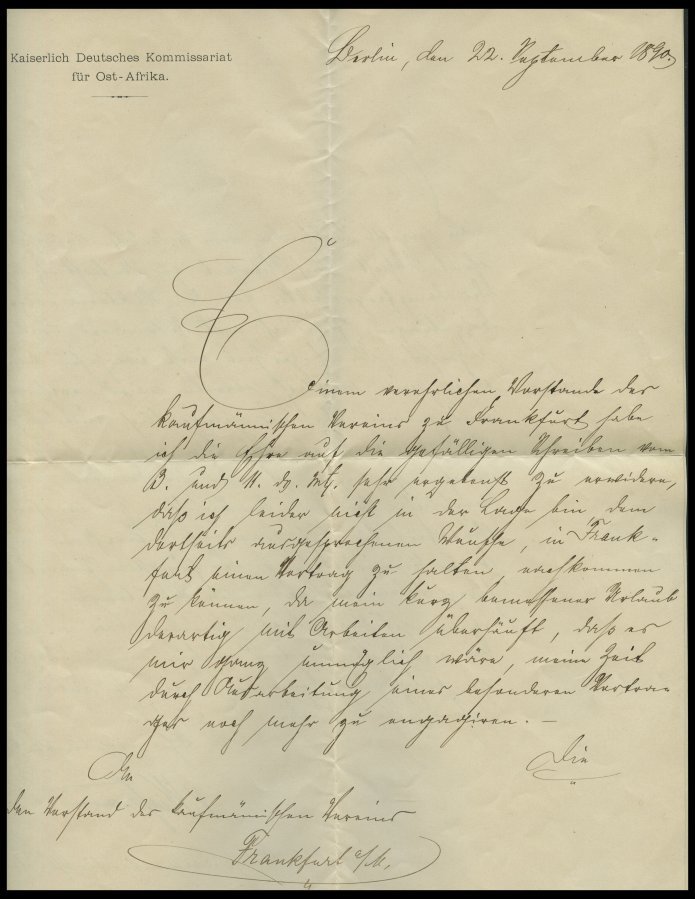 Kaiserlich Deutsches Kommissariat
für Ost-Afrika.
Berlin, den 22. September 1890.
Einem verehrlichen Vorstande des
kaufmännischen Vereins zu Frankfurt habe
ich die Ehre auf die gefälligen Schreiben vom
3. und 11. ds. Mts. sehr ergebenst zu erwidern,
daß ich leider nicht in der Lage bin dem
dortseits ausgesprochenen Wunsche, in Frank-
furt einen Vortrag zu halten, nachkommen
zu können, da mein kurz bemessener Urlaub
derartig mit Arbeiten überhäuft, daß es
mir ganz unmöglich wäre, meine Zeit
durch Ausarbeitung eines besonderen Vortra-
ges noch mehr zu engagiren. —
Die
An
den Vorstand des kaufmännischen Vereins
Frankfurt a/M.